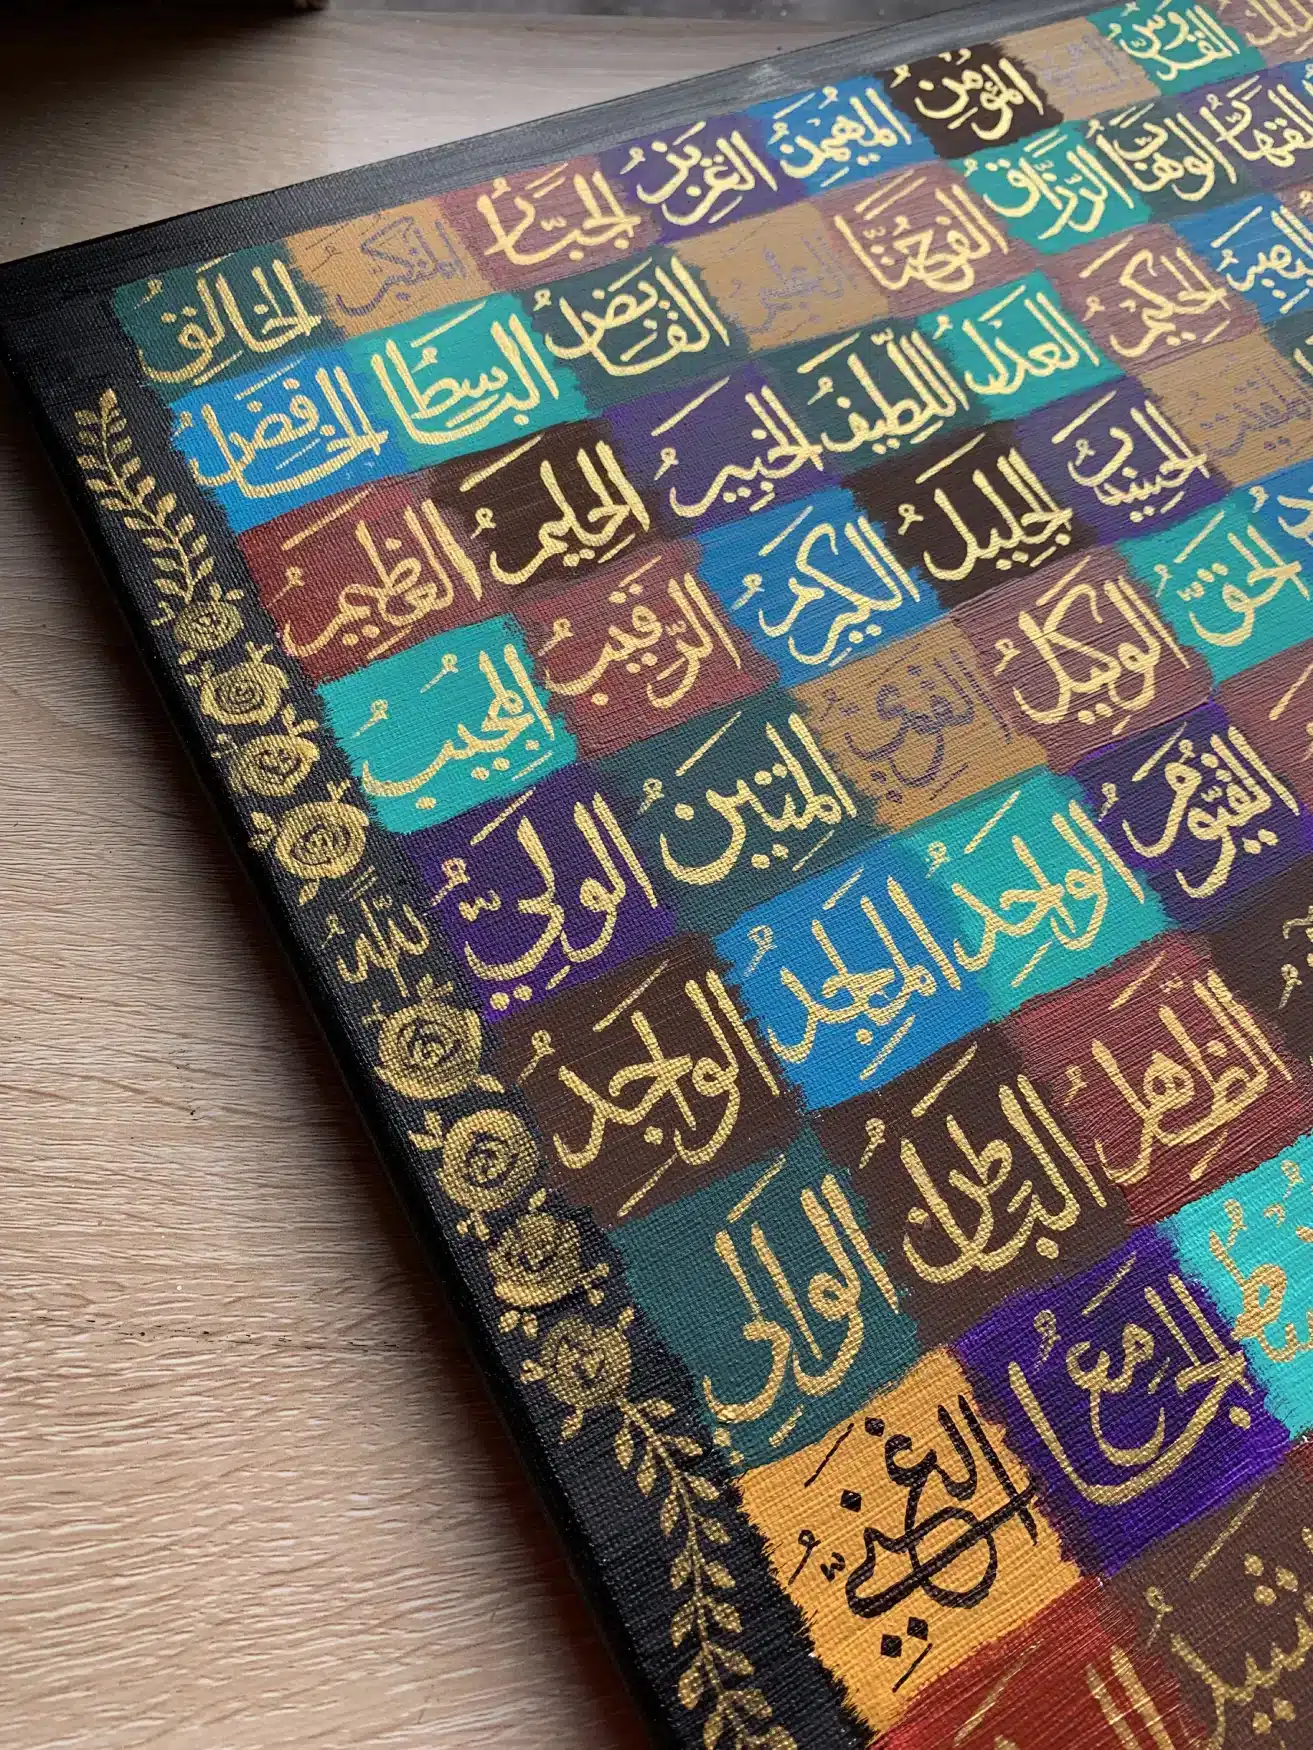 القُدُّوسُ المُؤْمِنُ المُهَيْمِنُ العَزِيزُ الجَبَّارُ المُتَكَبِّرُ الخَالِقُ
القَهَّارُ الوَهَّابُ الرَّزَّاقُ الفَتَّاحُ العَلِيمُ القَابِضُ البَاسِطُ الخَافِضُ
البَصِيرُ الحَكِيمُ العَدْلُ اللَّطِيفُ الخَبِيرُ الحَلِيمُ العَظِيمُ
المُقِيتُ الحَسِيبُ الجَلِيلُ الكَرِيمُ الرَّقِيبُ المُجِيبُ
الحَقُّ الوَكِيلُ القَوِيُّ المَتِينُ الوَلِيُّ
القَيُّومُ الوَاحِدُ المَاجِدُ الوَاجِدُ
الظَّاهِرُ البَاطِنُ الوَالِي
الجَامِعُ الغَنِيُّ